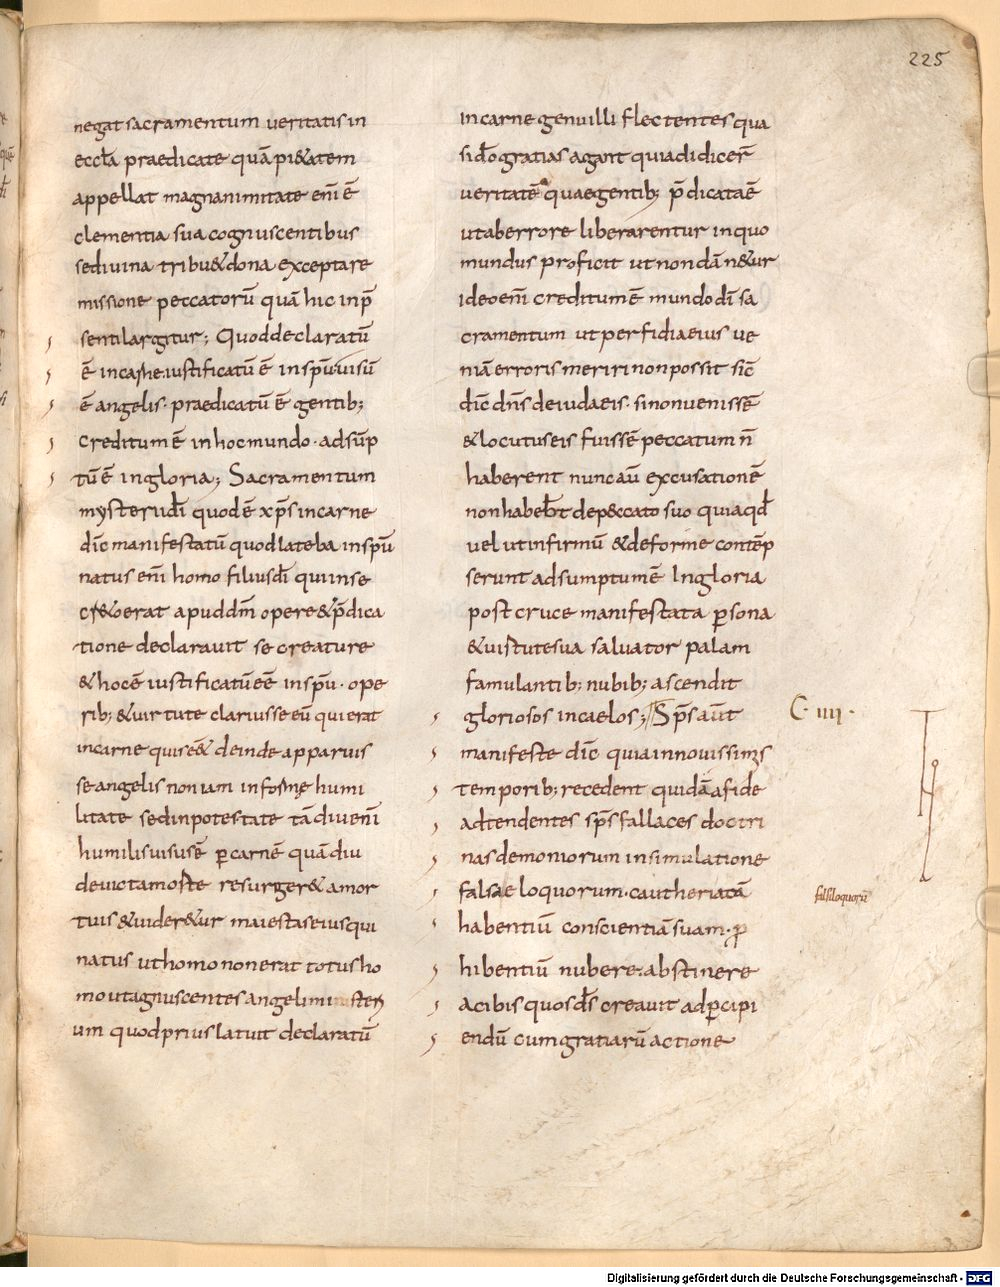 225
negat sacramentum veritatis in
eccla praedicate quā pi&atem
appellat magnanimitate enī ē
clementia sua cognuscentibus
se divina tribu& dona exceptare
missione peccatorū quā hic inp̄
senti largitur; Quod declaratū
ē in carne. iustificatū ē in sp̄u visū
ē angelis. praedicatū ē gentib;
creditum ē in hoc mundo. adsūp
tū ē in gloria; Sacramentum
mysterii dī quod ē xp̄s in carne
dic̄ manifestatū quod lateba in sp̄u
natus enī homo filius dī qui in se
cr&o erat apud dm̄ opere & p̄dica
tione declaravit se creature
& hoc ē iustificatū eē in sp̄u. ope
rib; & virtute clariusse eū qui erat
in carne quis eē& deinde apparuis
se angelis non iam in forme humi
litate sed in potestate tā diu enī
humilis visus ē p carnē quā diu
devicta morte resurger& a mor
tuis & vider&ur maiestas eius qui
natus ut homo non erat totus ho
mo ut agnuscentes angeli misteri
um quod prius latuit declaratū
in carne genu illi flectentes qua
si dō gratias agant quia didicer̄
veritatē quae gentib; p̄dicata ē
ut ab errore liberarentur in quo
mundus proficit ut non dān&ur
ideo enī creditum ē mundo dī sa
cramentum ut perfidia eius ve
niā erroris meriri non possit sic̄
dic̄ dn̄s de iudaeis. si non venissē
& locutus eis fuissē peccatum n̄
haberent nunc aū excusationē
non habebt de p&ccato suo quia qđ
vel ut infirmū & deforme contēp
serunt adsumptum ē In gloria
post cruce manifestata psona
& vistute sua salvator palam
famulantib; nubib; ascendit
gloriosos in caelos; Sp̄s aūt
C. IIII.
manifeste dic̄ quia in novissimis
temporib; recedent quidā a fide
adtendentes sp̄s fallaces doctri
nas demoniorum in simulatione
falsae loquorum. cautheriatā
falsiloquorū
habentiū conscientiā suam. p
hibentiū nubere. abstinere
a cibis quos ds̄ creavit ad pcipi
endū cum gratiarū actione
Digitalisierung gefördert durch die Deutsche Forschungsgemeinschaft - DFG